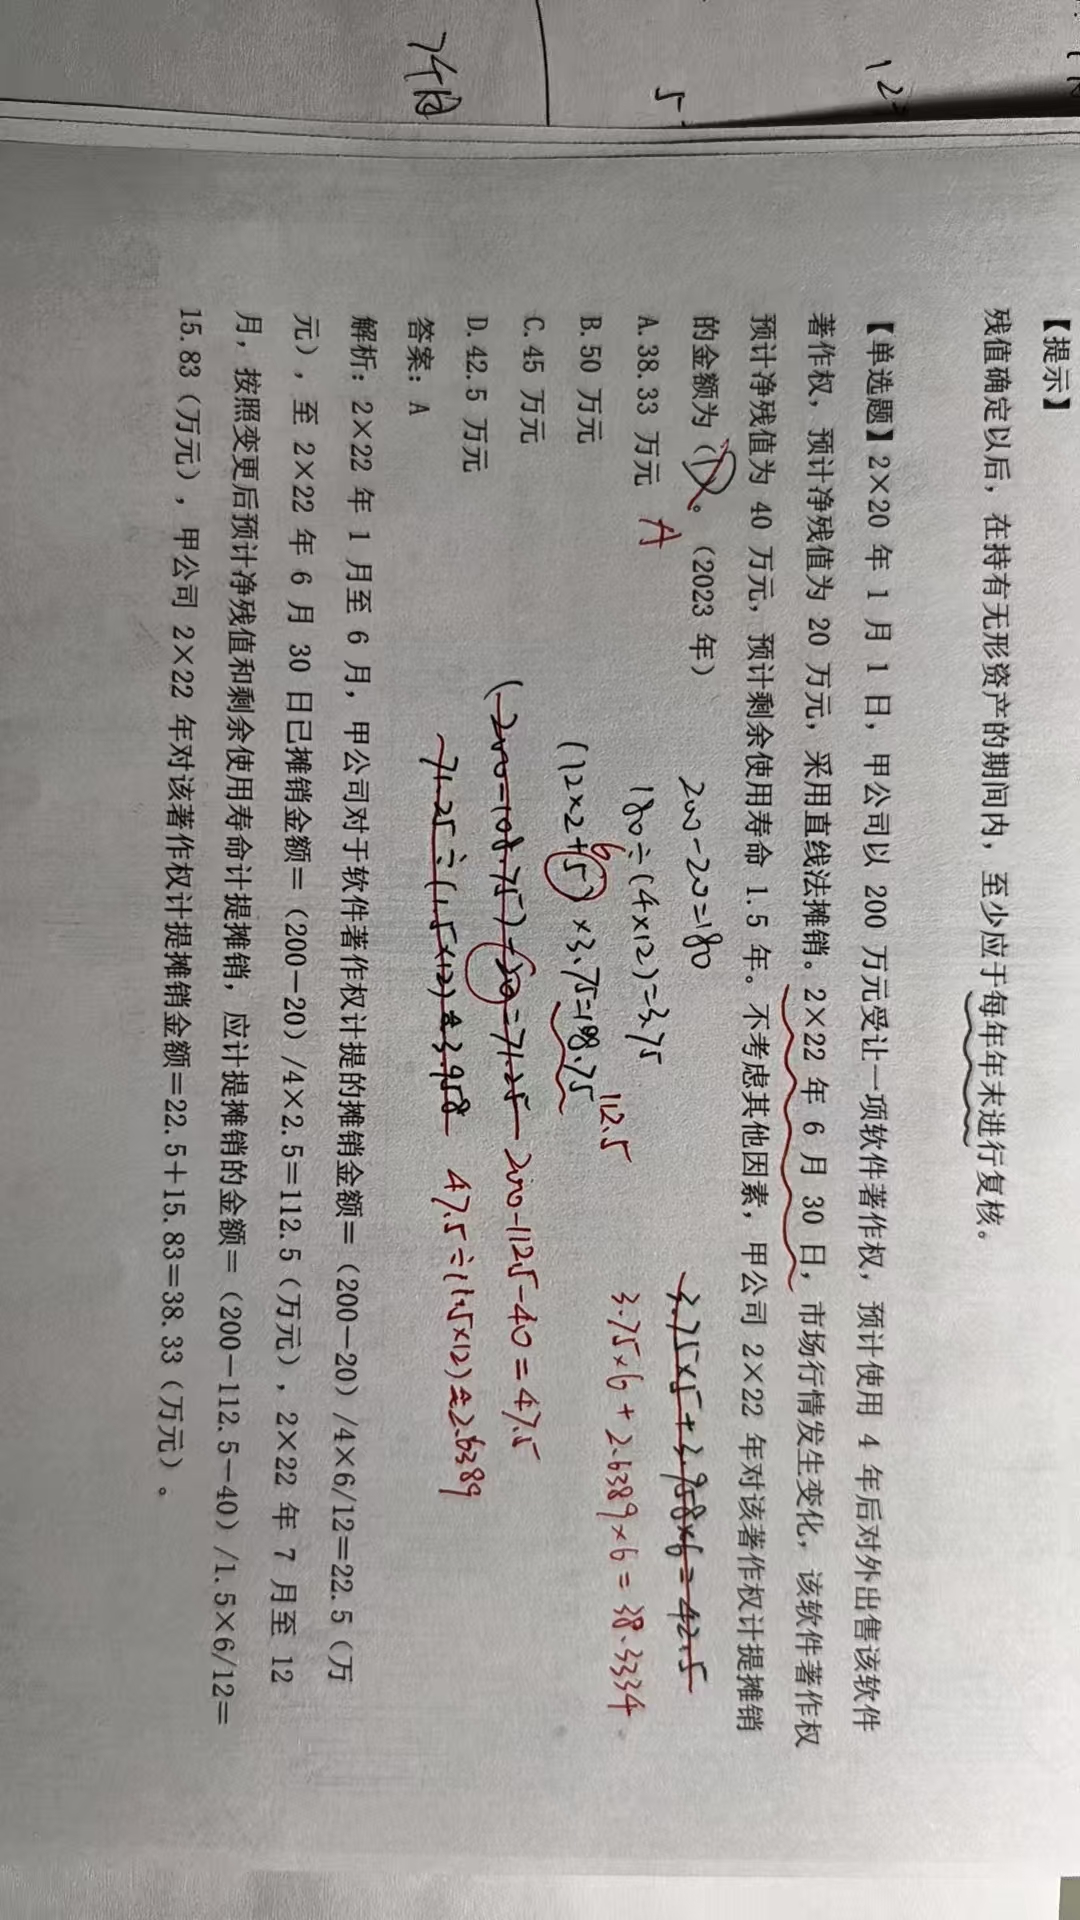 7个月
5
12
【提示】
残值确定以后，在持有无形资产的期间内，至少应于每年年末进行复核。
【单选题】2×20 年 1 月 1 日，甲公司以 200 万元受让一项软件著作权，预计使用 4 年后对外出售该软件
著作权，预计净残值为 20 万元，采用直线法摊销。2×22 年 6 月 30 日，市场行情发生变化，该软件著作权
预计净残值为 40 万元，预计剩余使用寿命 1.5 年。不考虑其他因素，甲公司 2×22 年对该著作权计提摊销
的金额为（D）。（2023 年）
A.38.33 万元 A
B.50 万元
C.45 万元
D.42.5 万元
200-20=180
180÷(4×12)=3.75
6
(12×2+5)×3.75=108.75
112.5
(200-108.75)-20=71.25
200-112.5-40=47.5
71.25÷(1.5×12)≈3.958
47.5÷(1.5×12)≈2.6389
3.75×5+3.958×6=42.5
3.75×6+2.6389×6=38.3334
答案：A
解析：2×22 年 1 月至 6 月，甲公司对于软件著作权计提的摊销金额＝（200－20）/4×6/12＝22.5（万
元），至 2×22 年 6 月 30 日已摊销金额＝（200－20）/4×2.5＝112.5（万元），2×22 年 7 月至 12
月，按照变更后预计净残值和剩余使用寿命计提摊销，应计提摊销的金额＝（200－112.5－40）/1.5×6/12＝
15.83（万元），甲公司 2×22 年对该著作权计提摊销金额＝22.5＋15.83＝38.33（万元）。